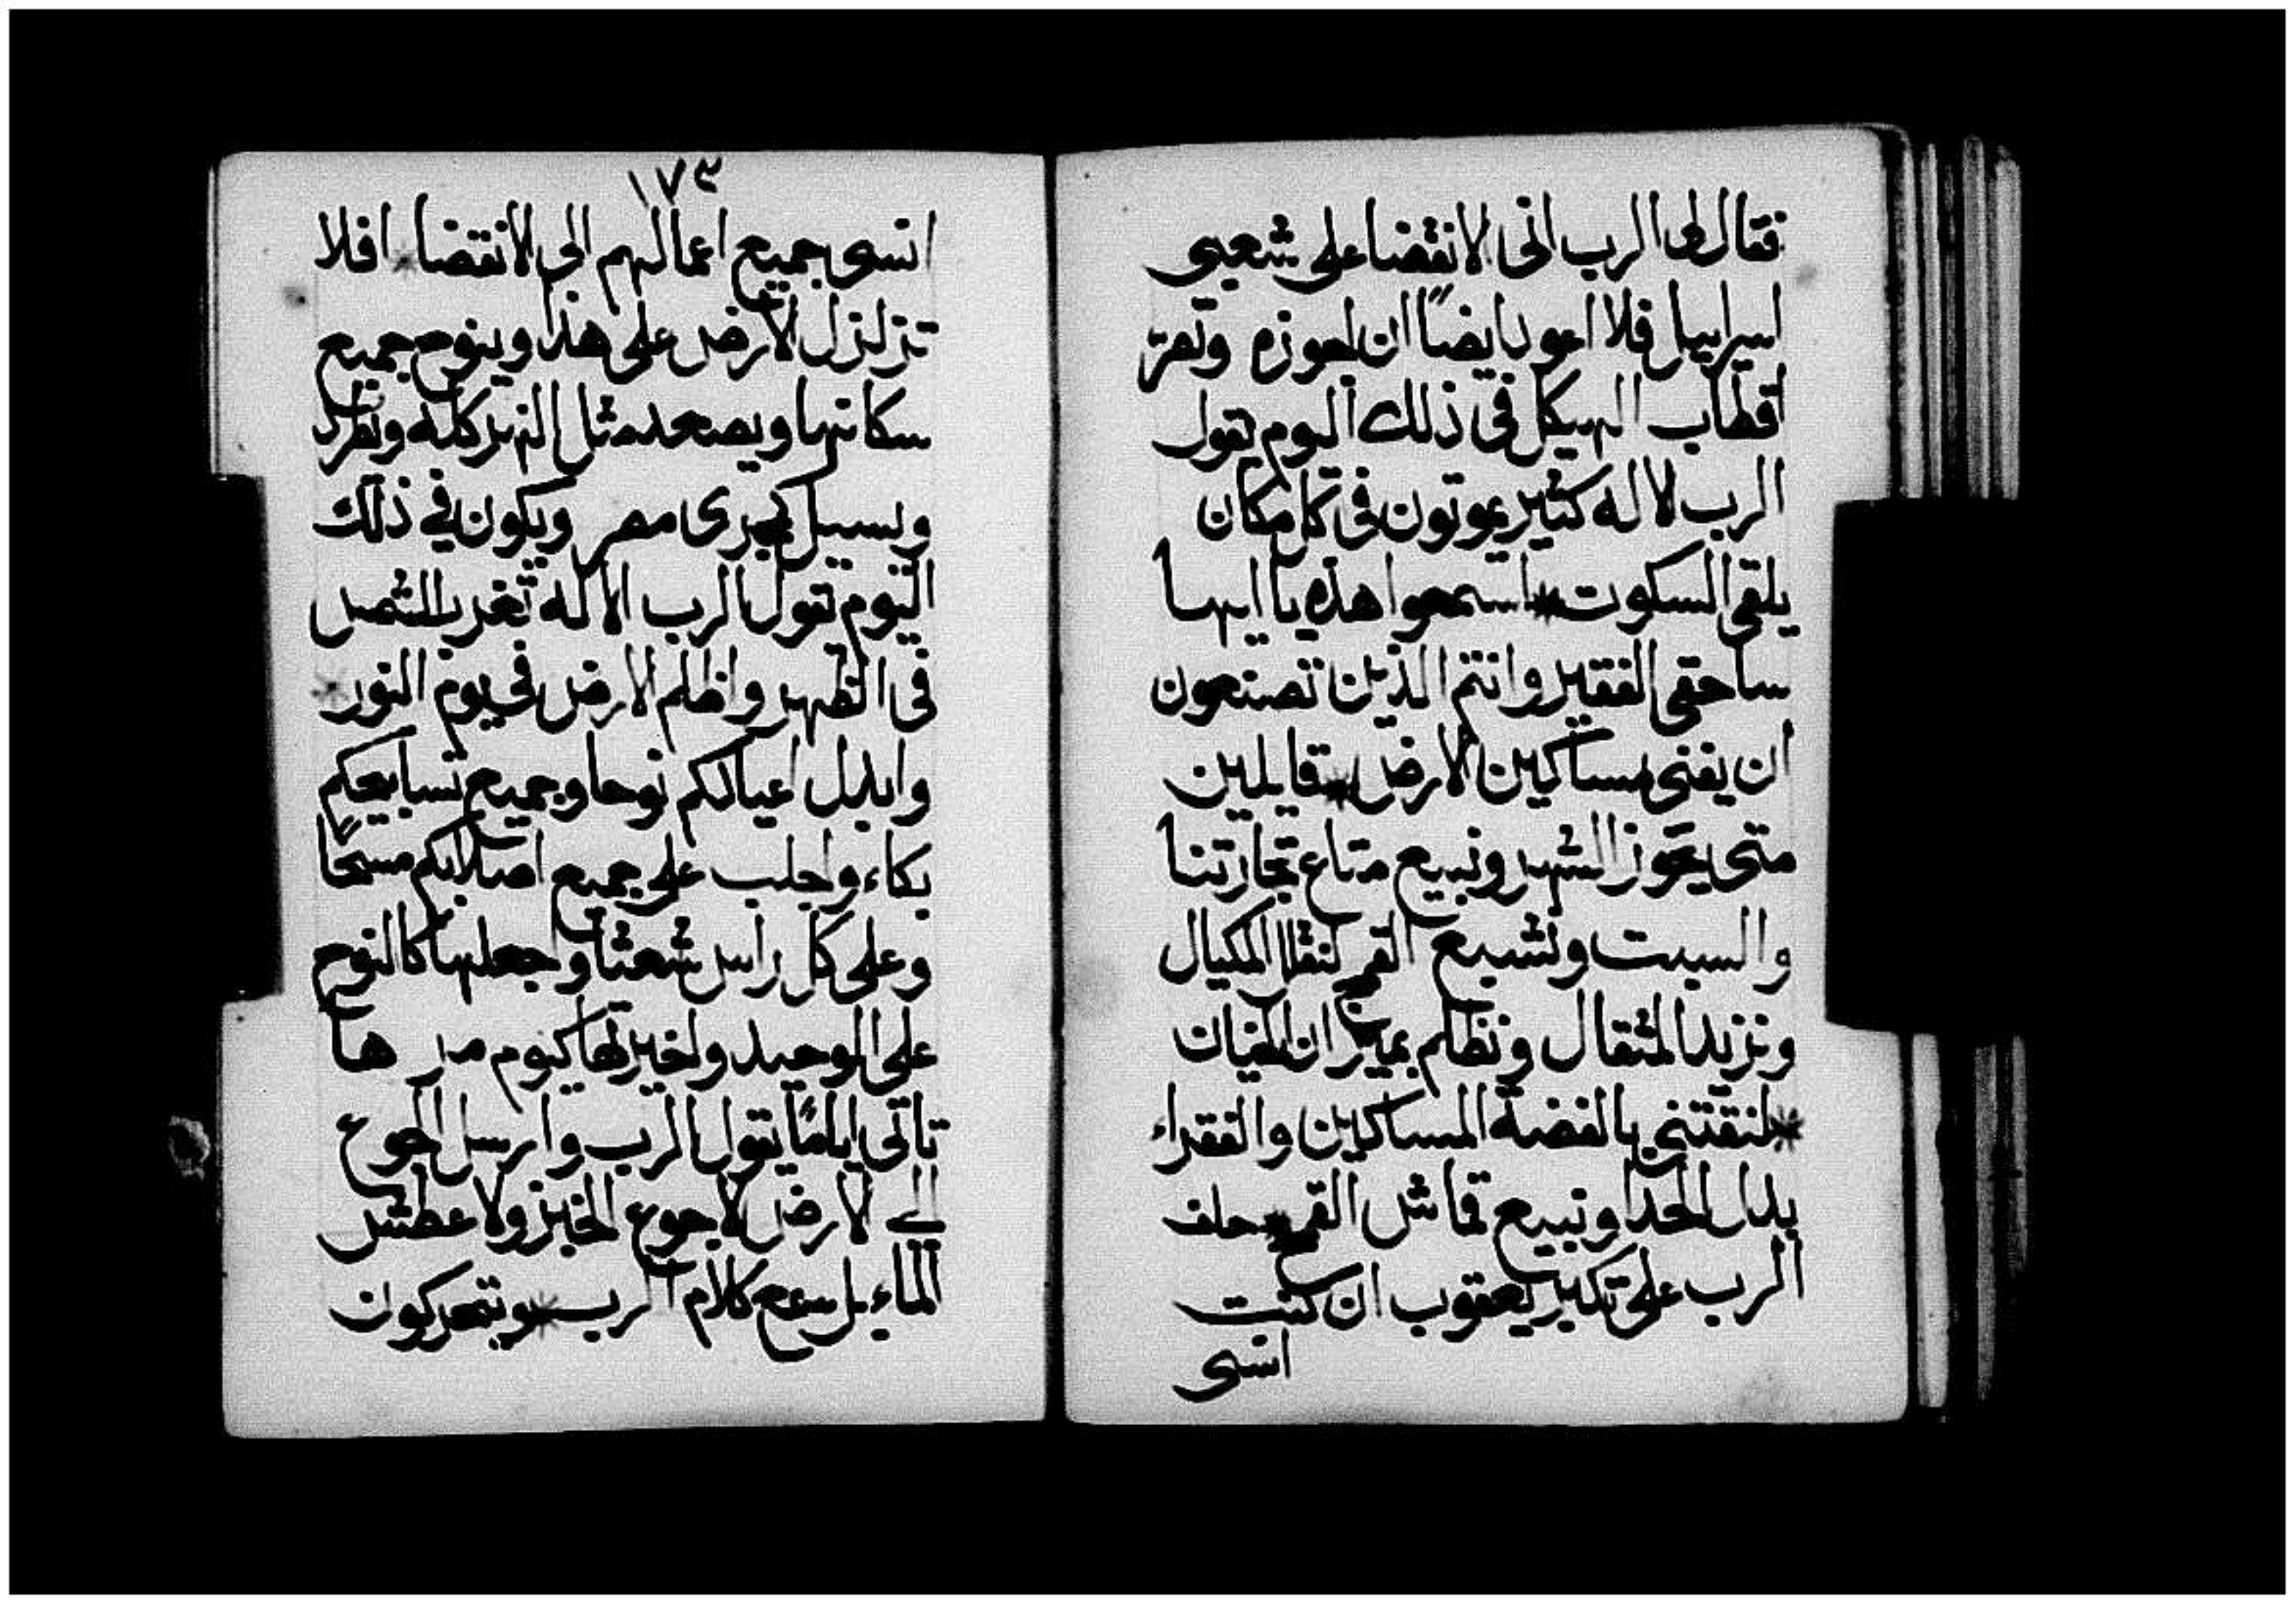 فقال لى الرب اتى الانقضا على شعبى
اسراييل فلا اعود ايضاً ان اجوزه وتصرّ
اقطاب الهيكل فى ذلك اليوم تقول
الرب الاله كثير يموتون فى كل مكان
يلقى السكوت * اسمعوا هذه يا ايها
ساحقى الفقير وانتم الذين تصنعون
ان يفنى مساكين الارض * قايلين
متى يجوز الشهر ونبيع متاع تجارتنا
والسبت ونشبع القمح لنقلل المكيال
ونزيد المثقال ونظلم بميزان
* لنقتنى بالفضة المساكين والفقراء
بدل الحدا ونبيع قماش القمح * حلف
الرب على تكبر يعقوب ان كنت
انسى
١٧٣
انسى جميع اعمالهم الى الانقضا * افلا
تزلزل الارض على هذا وينوح جميع
سكانها ويصعد مثل النهر كله ويطرد
ويسيل كمجرى مصر ويكون فى ذلك
اليوم تقول الرب الاله تغرب الشمس
فى الظهر واظلم الارض فى يوم النور *
وابدل اعيادكم نوحا وجميع تسابيحكم
بكاء واجلب على جميع اصلابكم مسحاً
وعلى كل راس شعثا واجعلها كالنوح
على الوحيد واخيرتها كيوم مر ها
تاتى اياماً يقول الرب وارسل الجوع
الى الارض لا جوع الخبز ولا عطش
الماء بل سمع كلام الرب * ويتحركون